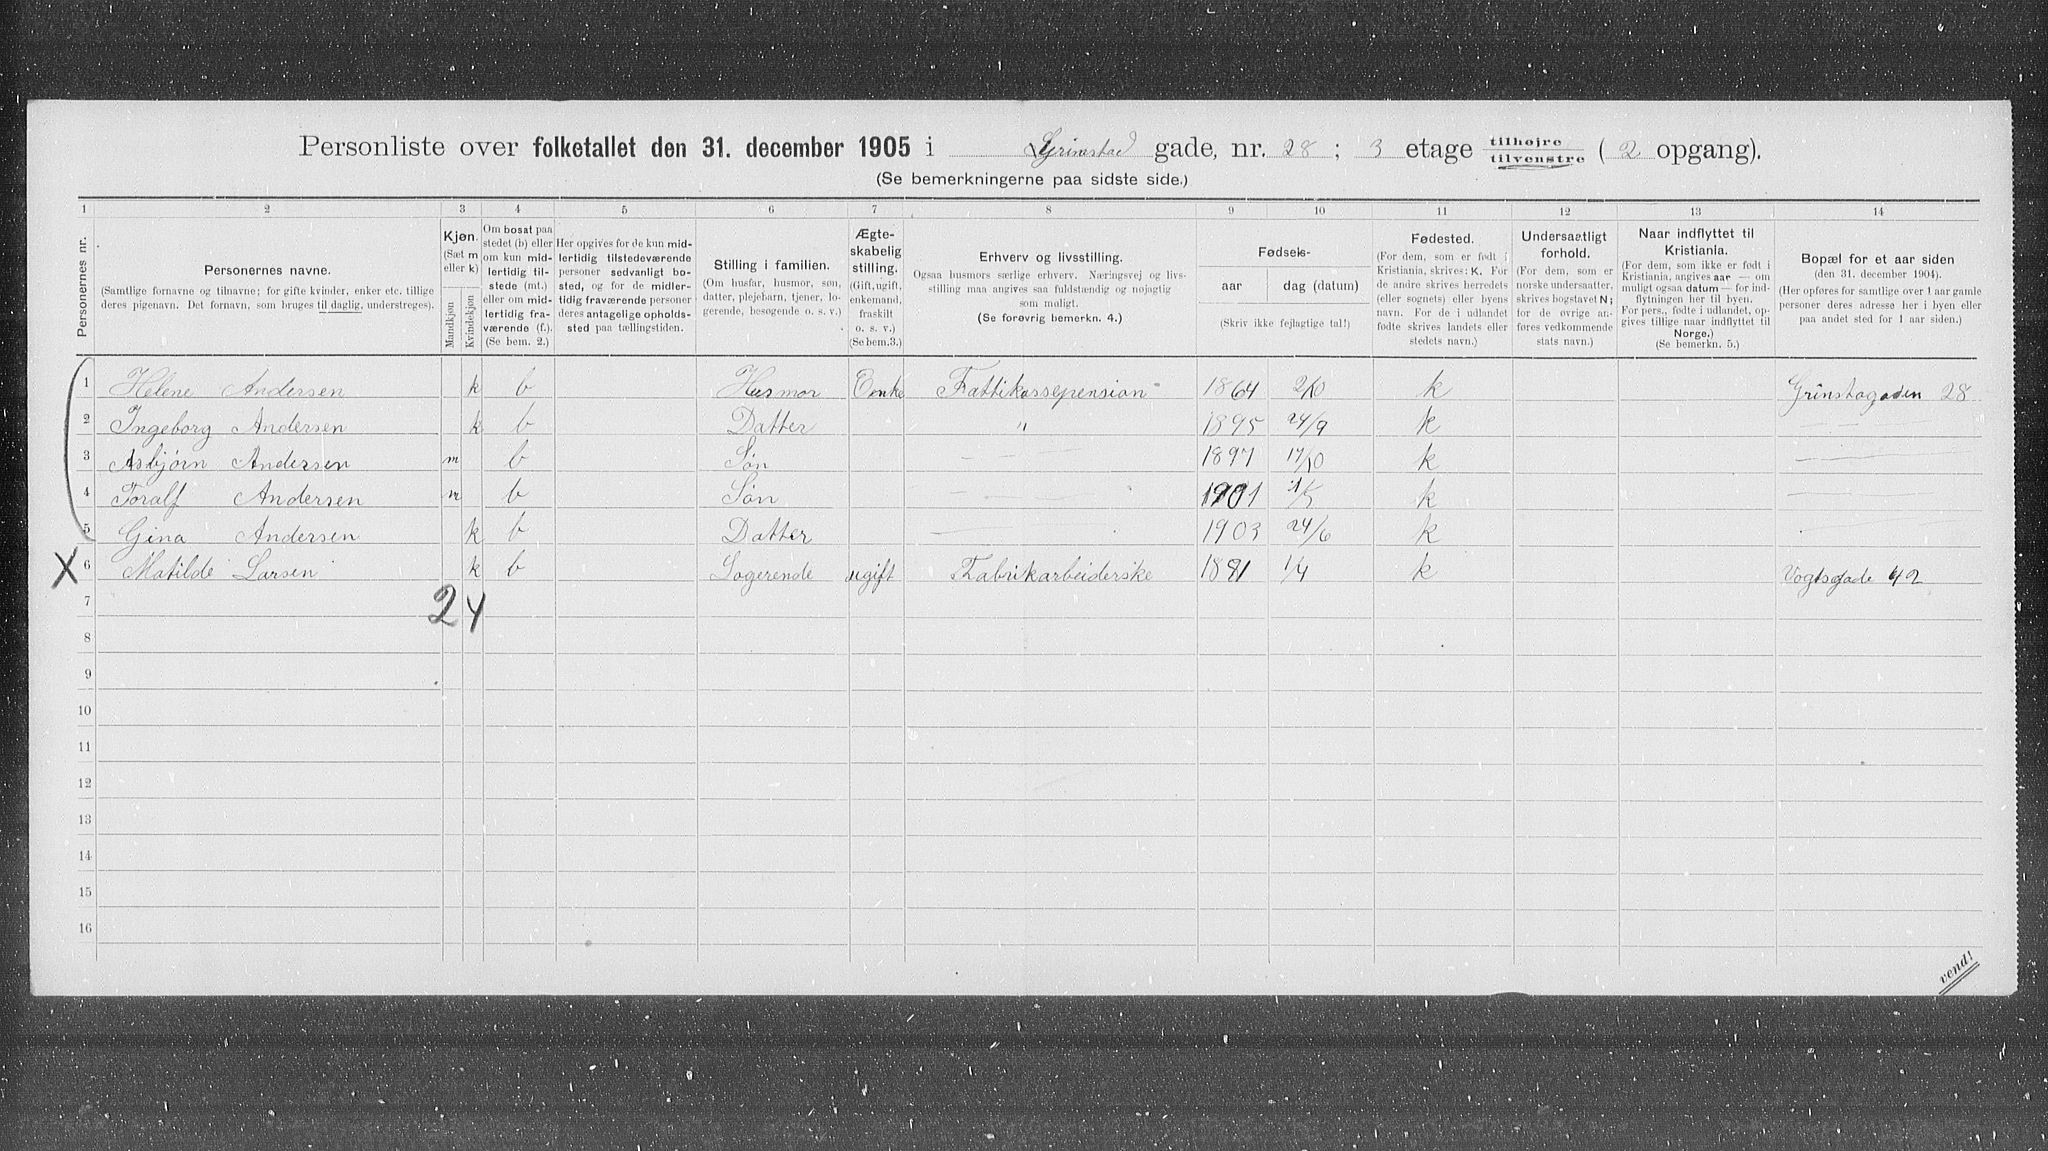 Personliste over folketallet den 31. december 1905 i Grimstad gade, nr. 28 ; 3 etage tilhøjre tilvenstre ( 2 opgang).
(Se bemerkningerne paa sidste side.)
1 2 3 4 5 6 7 8 9 10 11 12 13 14
Personernes nr.
Personernes navne.
(Samtlige fornavne og tilnavne; for gifte kvinder, enker etc. tillige
deres pigenavn. Det fornavn, som bruges til daglig, understreges).
Kjøn.
(Sæt m
eller k)
Mandkjøn
Kvindekjøn
Om bosat paa
stedet (b) eller
om kun mid-
lertidig til-
stede (mt.)
eller om mid-
lertidig fra-
værende (f.).
(Se bem. 2.)
Her opgives for de kun mid-
lertidig tilstedeværende
personer sedvanligt bo-
sted, og for de midler-
tidig fraværende personer
deres antagelige opholds-
sted paa tællingstiden.
Stilling i familien.
(Om husfar, husmor, søn,
datter, plejebarn, tjener, lo-
gerende, besøgende o. s. v.)
Ægte-
skabelig
stilling.
(Gift, ugift,
enkemand,
fraskilt
o. s. v.)
(Se bem.3.)
Erhverv og livsstilling.
Ogsaa husmors særlige erhverv. Næringsvej og livs-
stilling maa angives saa fuldstændig og nøjagtig
som muligt.
(Se forøvrig bemerkn. 4.)
Fødsels-
aar dag (datum)
(Skriv ikke fejlagtige tal!)
Fødested.
(For dem, som er født i
Kristiania, skrives: K. For
de andre skrives herredets
(eller sognets) eller byens
navn. For de i udlandet
fødte skrives landets eller
stedets navn.)
Undersaatligt
forhold.
(For norske
undersaatter,
skrives bogstavet N;
for de øvrige an-
føres vedkommende
stats navn.)
Naar indflyttet til
Kristiania.
(For dem, som ikke er født i
Kristiania, angives aar – om
muligt ogsaa datum – for ind-
flytningen her til byen.
For pers., fødte i udlandet, op-
gives tillige naar indflyttet til
Norge.)
(Se bemerkn. 5.)
Bopæl for et aar siden
(den 31. december 1904).
(Her opføres for samtlige over 1 aar gamle
personer deres adresse her i byen eller
paa andet sted for 1 aar siden.)
1 Helene Andersen k b Husmor Enke Fattikassepension 1864 2/10 k Grinstagaden 28
2 Ingeborg Andersen k b Datter " 1895 24/9 k
3 Asbjørn Andersen m b Søn 1897 17/10 k
4 Toralf Andersen m b Søn 1901 k
5 Gina Andersen k b Datter 1903 24/6 k
X 6 Matilde Larsen k b Logerende ugift Fabrikarbeiderske 1881 1/4 k Vogtsgade 42
7 2 4
8
9
10
11
12
13
14
15
16
vend!